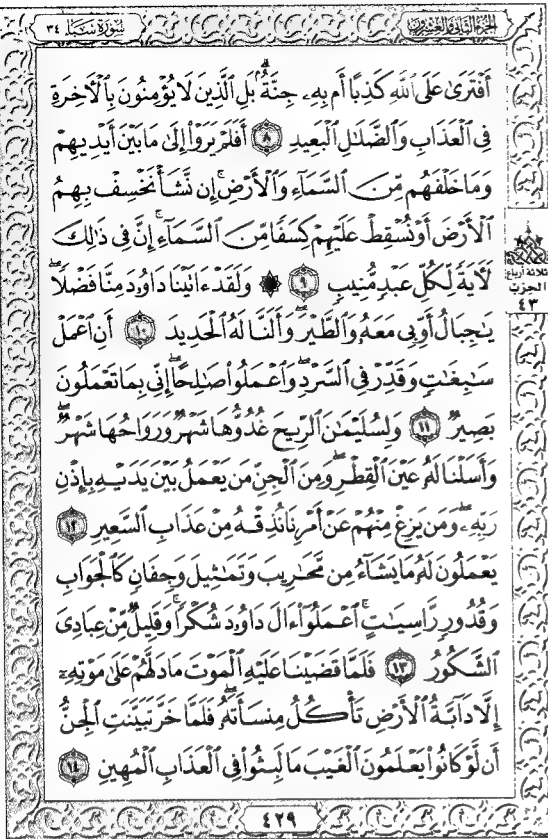 الجزء الثاني والعشرون
سورة سبإ ٣٤
أَفْتَرَىٰ عَلَى ٱللَّهِ كَذِبًا أَم بِهِۦ جِنَّةٌۢۗ بَلِ ٱلَّذِينَ لَا يُؤْمِنُونَ بِٱلْأَخِرَةِ
فِى ٱلْعَذَابِ وَٱلضَّلَٰلِ ٱلْبَعِيدِ ٨ أَفَلَمْ يَرَوْا۟ إِلَىٰ مَا بَيْنَ أَيْدِيهِمْ
وَمَا خَلْفَهُم مِّنَ ٱلسَّمَآءِ وَٱلْأَرْضِۚ إِن نَّشَأْ نَخْسِفْ بِهِمُ
ٱلْأَرْضَ أَوْ نُسْقِطْ عَلَيْهِمْ كِسَفًا مِّنَ ٱلسَّمَآءِۚ إِنَّ فِى ذَٰلِكَ
لَأَيَةً لِّكُلِّ عَبْدٍ مُّنِيبٍ ٩ ۞ وَلَقَدْ ءَاتَيْنَا دَاوُۥدَ مِنَّا فَضْلًاۖ
يَٰجِبَالُ أَوِّبِى مَعَهُۥ وَٱلطَّيْرَۖ وَأَلَنَّا لَهُ ٱلْحَدِيدَ ١٠ أَنِ ٱعْمَلْ
سَٰبِغَٰتٍ وَقَدِّرْ فِى ٱلسَّرْدِۖ وَٱعْمَلُوا۟ صَٰلِحًاۖ إِنِّى بِمَا تَعْمَلُونَ
بَصِيرٌ ١١ وَلِسُلَيْمَٰنَ ٱلرِّيحَ غُدُوُّهَا شَهْرٌ وَرَوَاحُهَا شَهْرٌۖ
وَأَسَلْنَا لَهُۥ عَيْنَ ٱلْقِطْرِۖ وَمِنَ ٱلْجِنِّ مَن يَعْمَلُ بَيْنَ يَدَيْهِ بِإِذْنِ
رَبِّهِۦۖ وَمَن يَزِغْ مِنْهُمْ عَنْ أَمْرِنَا نُذِقْهُ مِنْ عَذَابِ ٱلسَّعِيرِ ١٢
يَعْمَلُونَ لَهُۥ مَا يَشَآءُ مِن مَّحَٰرِيبَ وَتَمَٰثِيلَ وَجِفَانٍ كَٱلْجَوَابِ
وَقُدُورٍ رَّاسِيَٰتٍۚ ٱعْمَلُوٓا۟ ءَالَ دَاوُۥدَ شُكْرًاۚ وَقَلِيلٌ مِّنْ عِبَادِىَ
ٱلشَّكُورُ ١٣ فَلَمَّا قَضَيْنَا عَلَيْهِ ٱلْمَوْتَ مَا دَلَّهُمْ عَلَىٰ مَوْتِهِۦٓ
إِلَّا دَآبَّةُ ٱلْأَرْضِ تَأْكُلُ مِنسَأَتَهُۥۖ فَلَمَّا خَرَّ تَبَيَّنَتِ ٱلْجِنُّ
أَن لَّوْ كَانُوا۟ يَعْلَمُونَ ٱلْغَيْبَ مَا لَبِثُوا۟ فِى ٱلْعَذَابِ ٱلْمُهِينِ ١٤
ثلاثة أرباع
الحزب
٤٣
٤٢٩